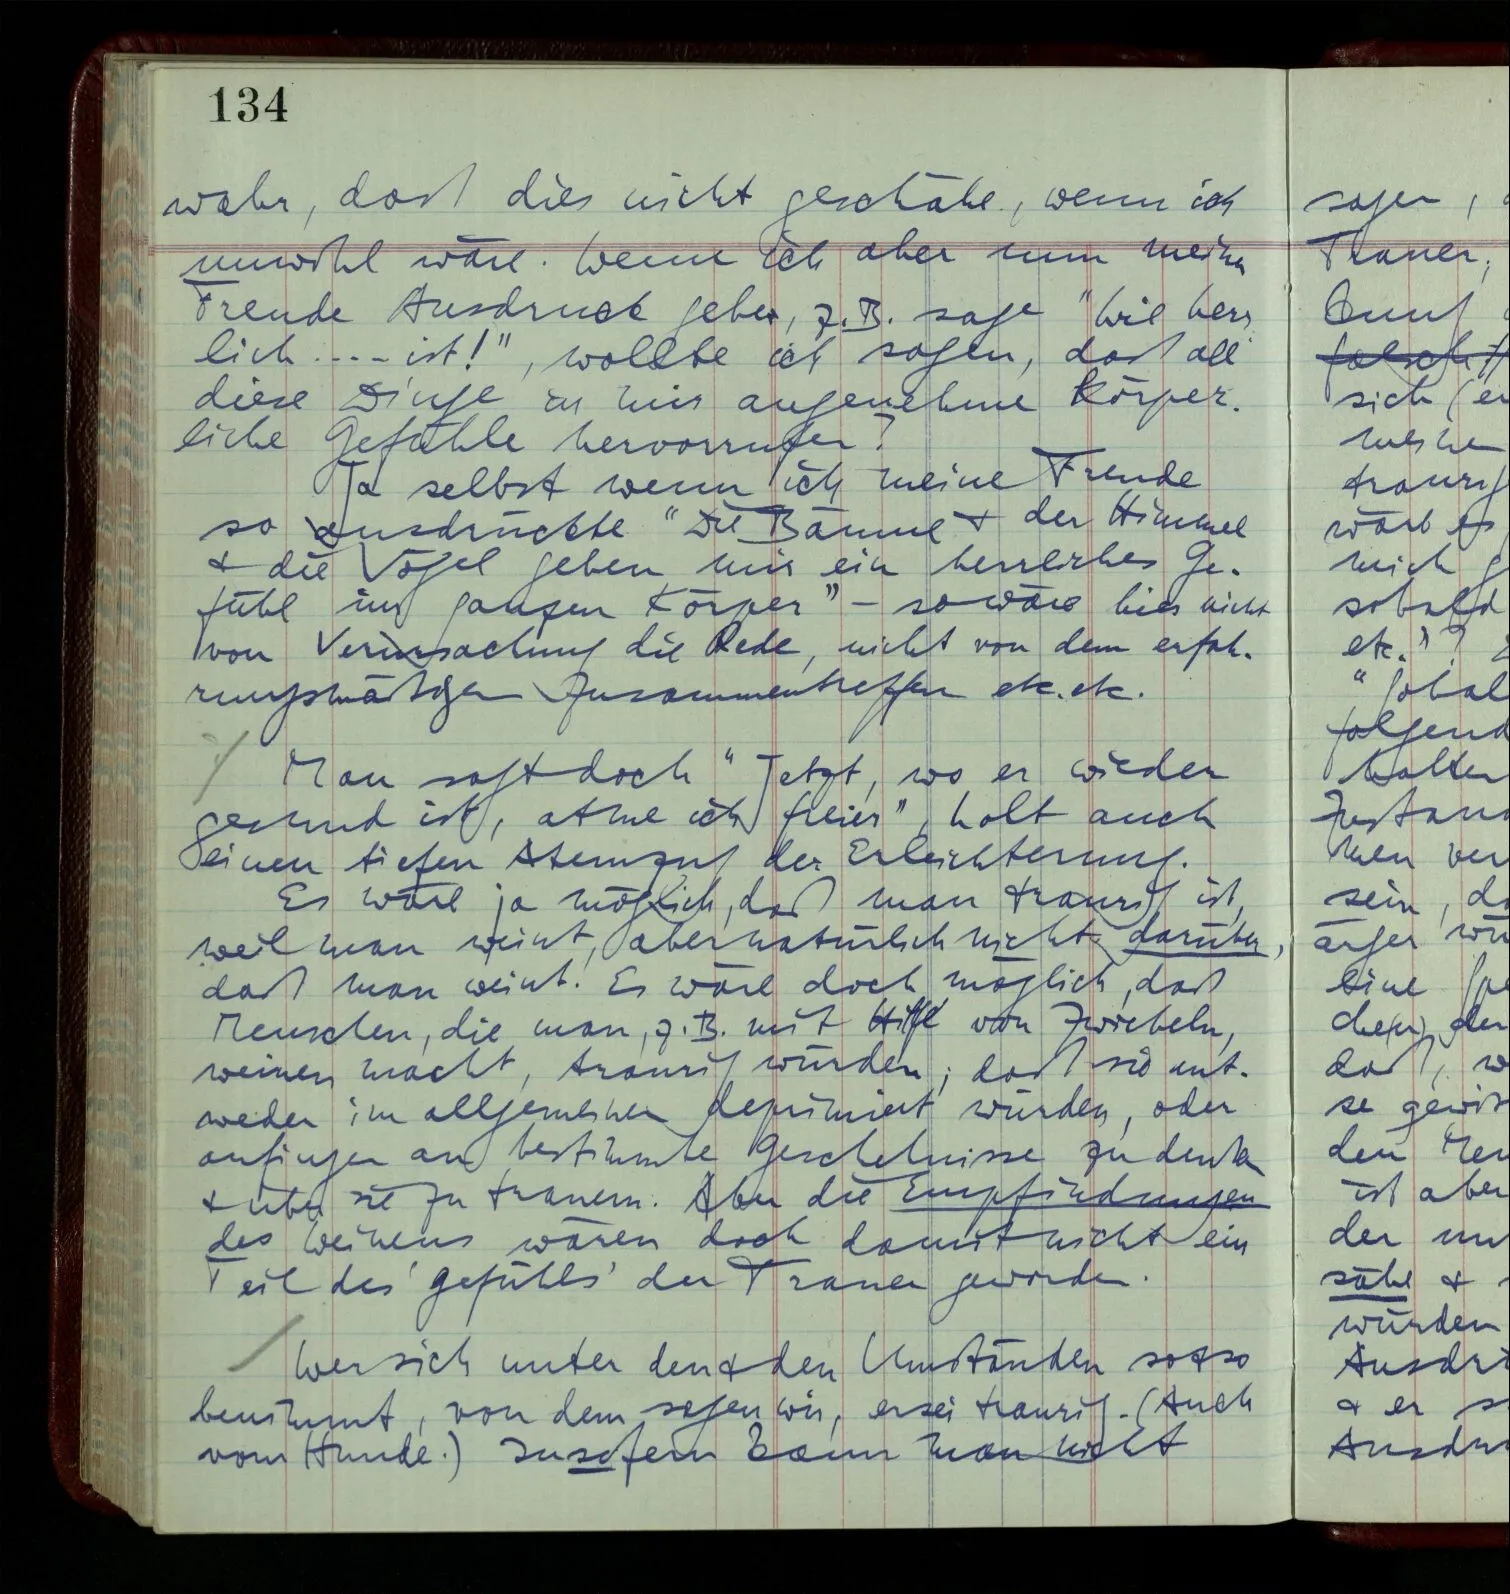 134
wahr, daß dies nicht geschähe, wenn ich
unwohl wäre. Wenn ich aber nun meiner
Freude Ausdruck gebe, z.B. sage "Wie herr
lich .... ist!", wollte ich sagen, daß all
diese Dinge in mir angenehme körper-
liche Gefühle hervorrufen?
Ja selbst wenn ich meine Freude
so ausdrückte "Die Bäume & der Himmel
& die Vögel geben mir ein herrliches Ge-
fühl im ganzen Körper" – so wäre hier nicht
von Verursachung die Rede, nicht von dem erfah-
rungsmäßigen Zusammentreffen etc. etc.
Man sagt doch "Jetzt, wo er wieder
gesund ist, atme ich freier", holt auch
einen tiefen Atemzug der Erleichterung.
Es wäre ja möglich, daß man traurig ist,
weil man weint, aber natürlich nicht darüber,
daß man weint. Es wäre doch möglich, daß
Menschen, die man, z.B. mit Hilfe von Zwiebeln,
weinen macht, traurig würden; daß sie ent-
weder im allgemeinen deprimiert würden, oder
anfingen an bestimmte Geschehnisse zu denken
& über sie zu trauern. Aber die Empfindungen
des Weinens wären doch damit nicht ein
Teil des 'Gefühls' der Trauer geworden.
Wer sich unter den & den Umständen so & so
benimmt, von dem sagen wir, er sei traurig. (Auch
vom Hunde.) Insofern kann man nicht
sagen,
Trauer,
sich
traurig
mich
sobald
etc."?
folgend
halten
sein,
eine
der
sähe &
würden
& er